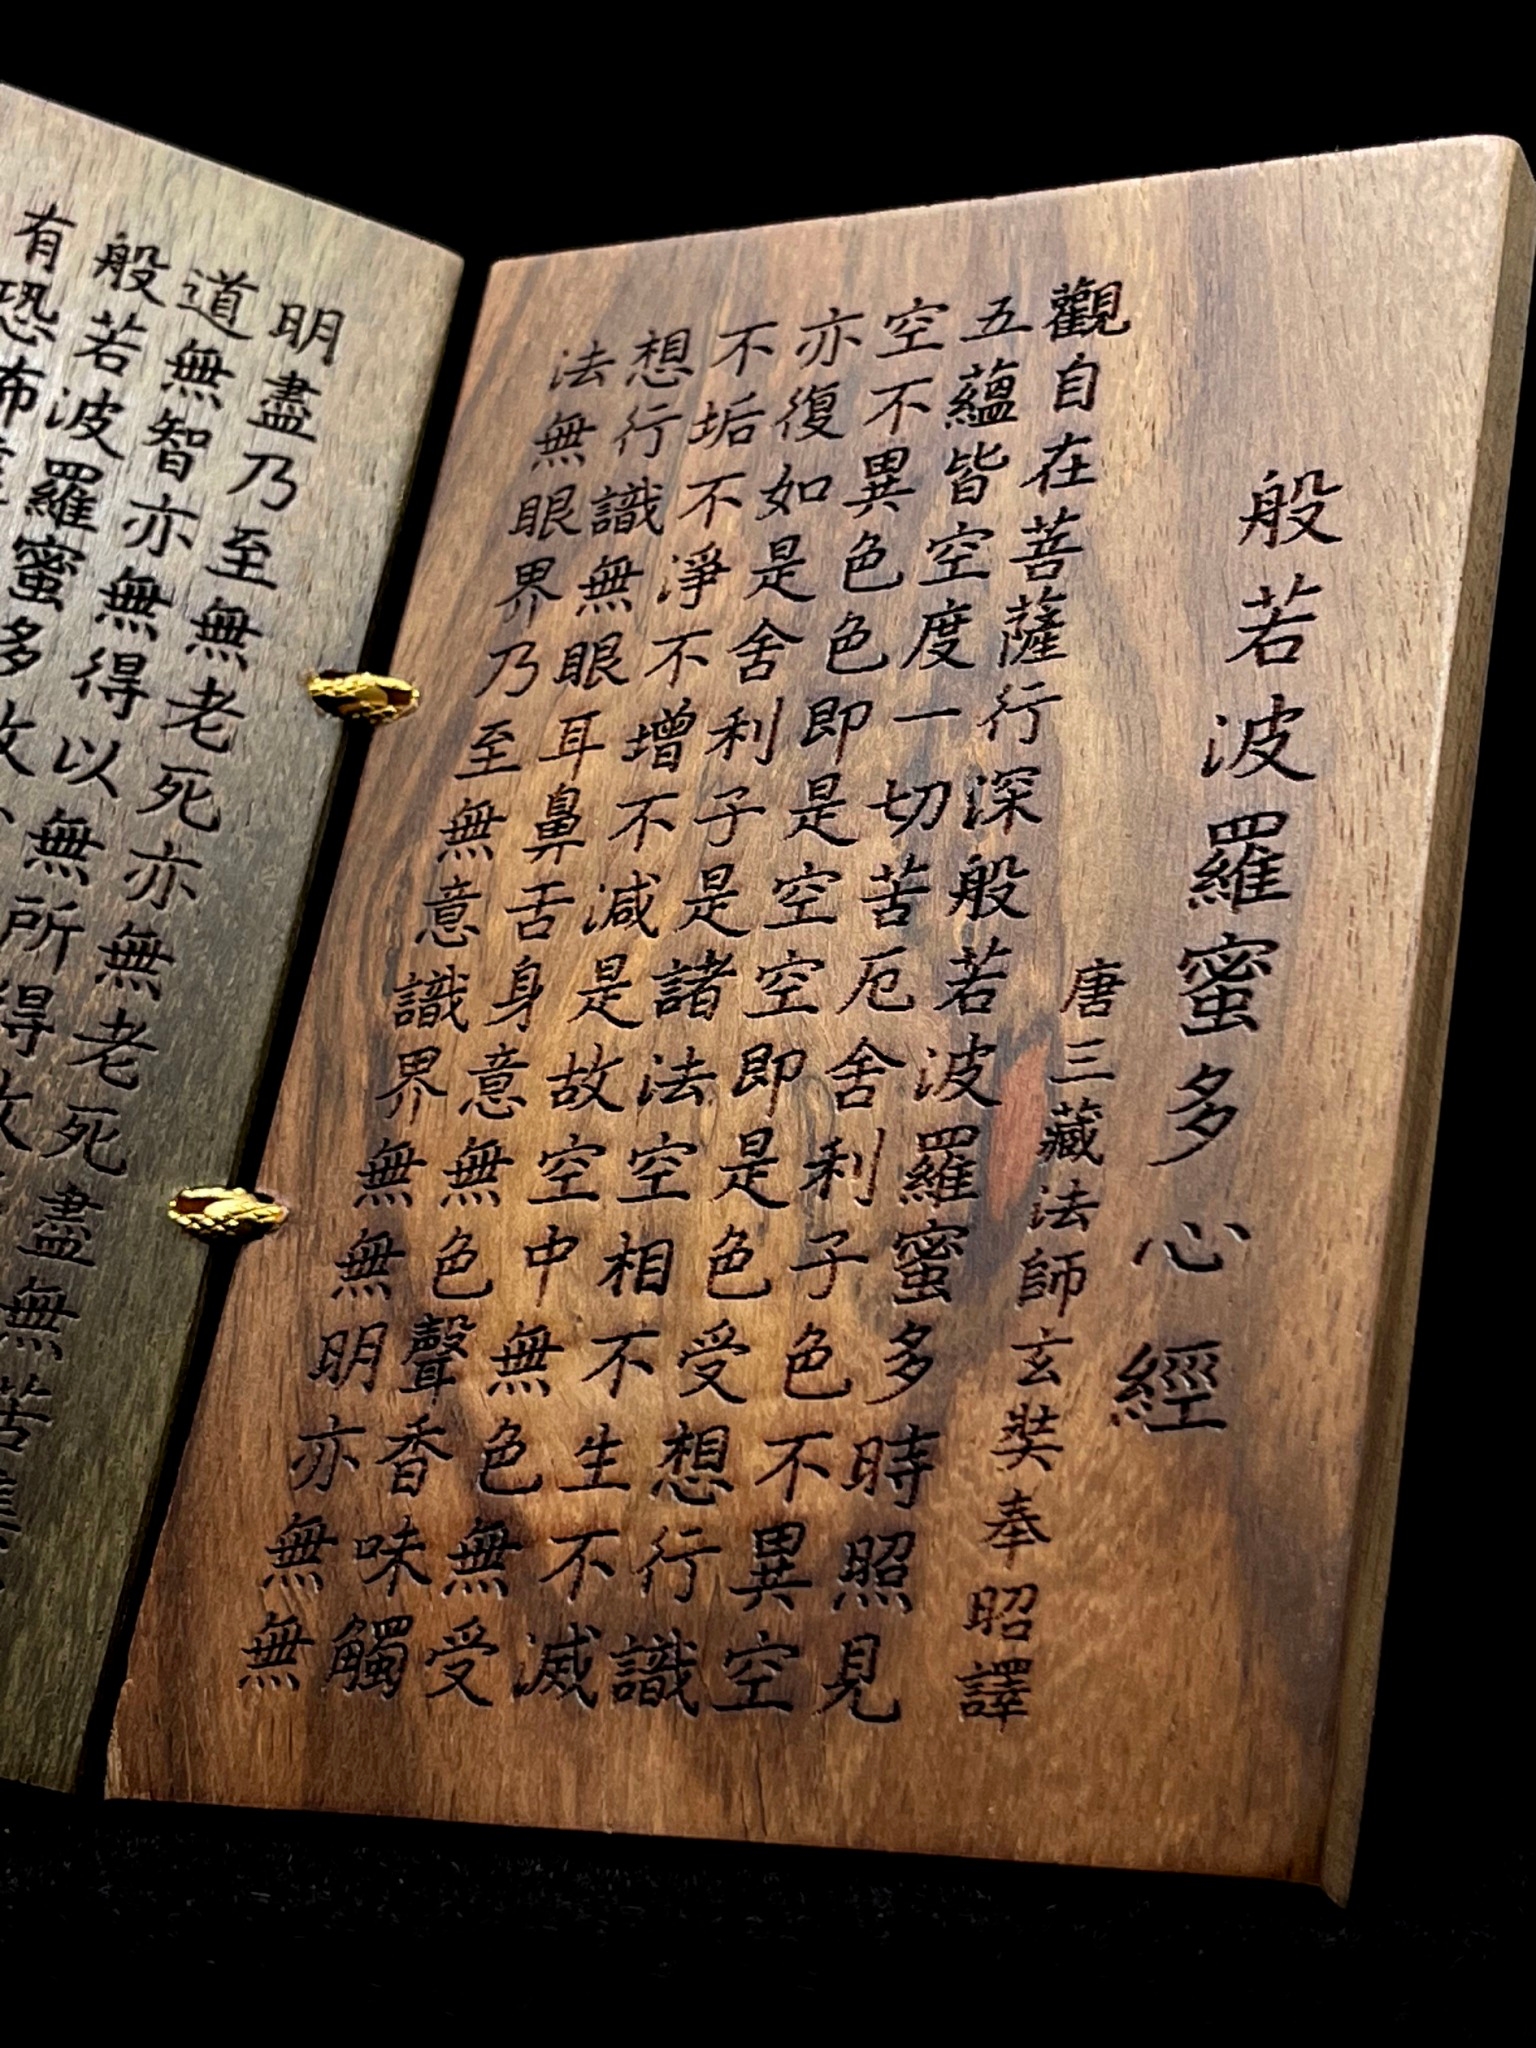 般若波羅蜜多心經
唐三藏法師玄奘奉昭譯
觀自在菩薩行深般若波羅蜜多時照見
五蘊皆空度一切苦厄舍利子色不異空
空不異色色即是空空即是色受想行識
亦復如是舍利子是諸法空相不生不滅
不垢不淨不增不減是故空中無色無受
想行識無眼耳鼻舌身意無色聲香味觸
法無眼界乃至無意識界無無明亦無無
明盡乃至無老死亦無老死盡無苦集
道無智亦無得以無所得故
般若波羅蜜多故
有恐怖